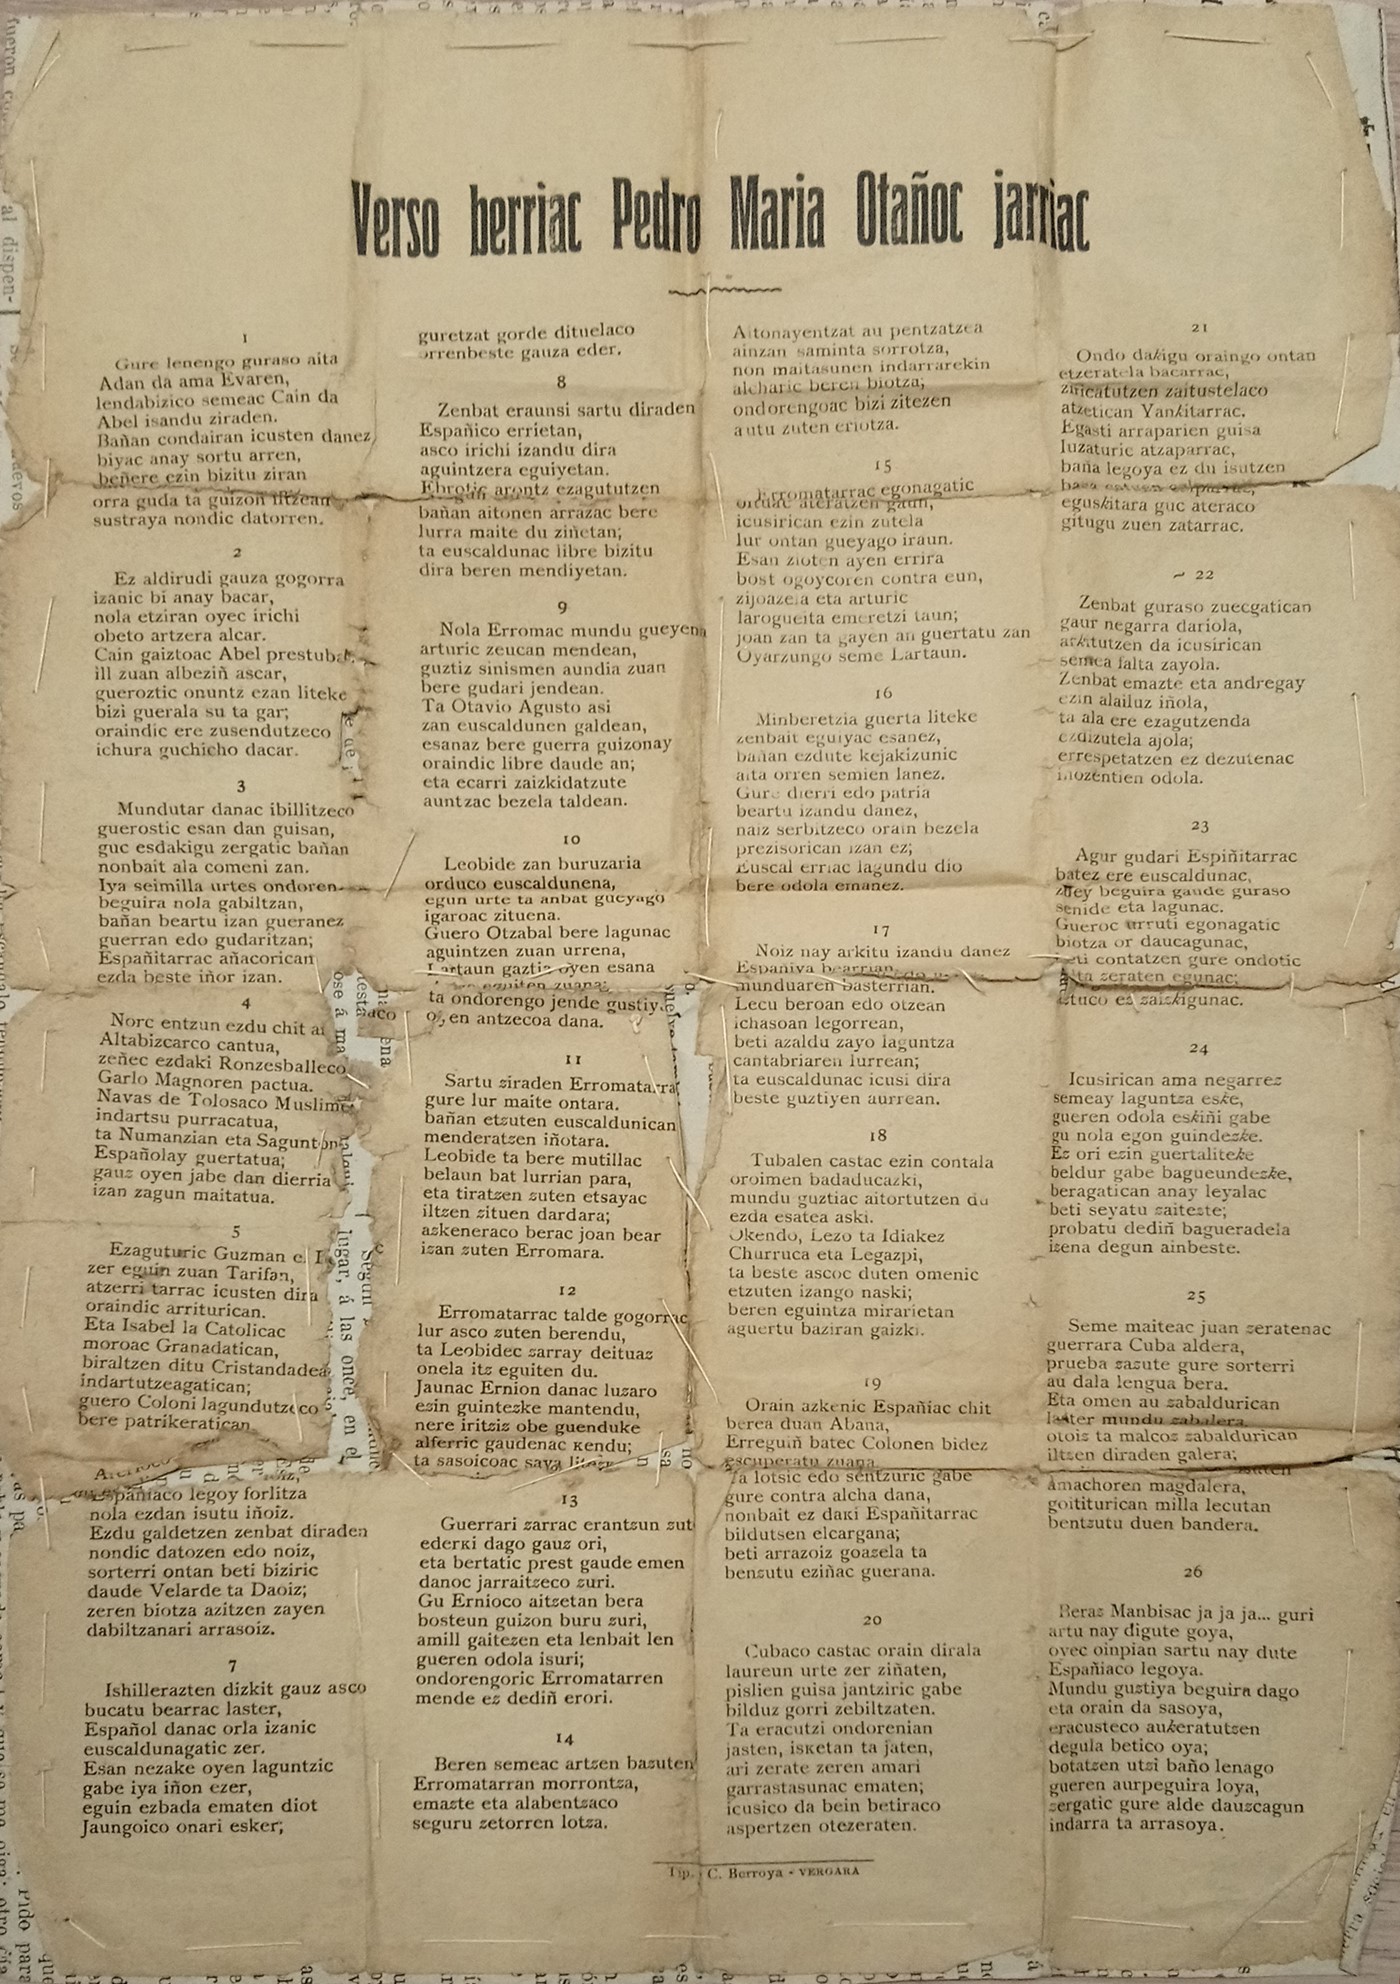 Verso berriac Pedro Maria Otañoc jarriac
1
Gure lenengo guraso aita
Adan da ama Evaren,
lendabizico semeac Cain da
Abel isandu ziraden.
Bañan condairan icusten danez
biyac anay sortu arren,
beñere ezin bizitu ziran
orra guda ta guizon iltzean
sustraya nondic datorren.
2
Ez aldirudi gauza gogorra
izanic bi anay bacar,
nola etziran oyec irichi
obeto artzera alcar.
Cain gaiztoac Abel prestuba
ill zuan albeziñ ascar,
gueroztic onuntz ezan liteke
bizi guerala su ta gar;
oraindic ere zusendutzeco
ichura guchicho dacar.
3
Mundutar danac ibillitzeco
guerostic esan dan guisan,
guc esdakigu zergatic bañan
nonbait ala comeni zan.
Iya seimilla urtes ondoren
beguira nola gabiltzan,
bañan beartu izan gueranez
guerran edo gudaritzan;
Españitarrac añacorican
ezda beste iñor izan.
4
Norc entzun ezdu chit
Altabizcarco cantua,
zeñec ezdaki Ronzesballeco
Garlo Magnoren pactua.
Navas de Tolosaco
indartsu purracatua,
ta Numanzian eta
Españolay guertatua;
gauz oyen jabe dan dierria
izan zagun maitatua.
5
Ezaguturic Guzman
zer eguin zuan Tarifan,
atzerri tarrac icusten dira
oraindic arriturican.
Eta Isabel la Catolicac
moroac Granadatican,
biraltzen ditu Cristandadea
indartutzeagatican;
guero Coloni lagundutzeco
bere patrikeratican
Españiaco legoy forlitza
nola ezdan isutu iñoiz.
Ezdu galdetzen zenbat diraden
nondic datozen edo noiz,
sorterri ontan beti biziric
daude Velarde ta Daoiz;
zeren biotza azitzen zayen
dabiltzanari arrasoiz.
7
Ishillerazten dizkit gauz asco
bucatu bearrac laster,
Español danac orla izanic
euscaldunagatic zer.
Esan nezake oyen laguntzic
gabe iya iñon ezer,
eguin ezbada ematen diot
Jaungoico onari esker;
guretzat gorde dituelaco
orrenbeste gauza eder.
8
Zenbat eraunsi sartu diraden
Españico errietan,
asco irichi izandu dira
aguintzera eguiyetan.
Ebrotic arontz ezagututzen
bañan aitonen arrazac bere
lurra maite du ziñetan;
ta euscaldunac libre bizitu
dira beren mendiyetan.
9
Nola Erromac mundu gueyena
arturic zeucan mendean,
guztiz sinismen aundia zuan
bere gudari jendean.
Ta Otavio Agusto asi
zan euscaldunen galdean,
esanaz bere guerra guizonay
oraindic libre daude an;
eta ecarri zaizkidatzute
auntzac bezela taldean.
10
Leobide zan buruzaria
orduco euscaldunena,
egun urte ta anbat gueyago
igaroac zituena.
Guero Otzabal bere lagunac
aguintzen zuan urrena,
Lartaun gaztia oyen esana
ta ondorengo jende
oyen antzecoa dana.
11
Sartu ziraden Erromatarra
gure lur maite ontara.
bañan etzuten euscaldunican
menderatzen iñotara.
Leobide ta bere mutillac
belaun bat lurrian para,
eta tiratzen zuten etsayac
iltzen zituen dardara;
azkeneraco berac joan bear
izan zuten Erromara.
12
Erromatarrac talde gogorrac
lur asco zuten berendu,
ta Leobidec zarray deituaz
onela itz eguiten du.
Jaunac Ernion danac luzaro
ezin guintezke mantendu,
nere iritziz obe guenduke
alferric gaudenac kendu;
ta sasoicoac saya
13
Guerrari zarrac erantzun zut
ederki dago gauz ori,
eta bertatic prest gaude emen
danoc jarraitzeco zuri.
Gu Ernioco aitzetan bera
bosteun guizon buru zuri,
amill gaitezen eta lenbait len
gueren odola isuri;
ondorengoric Erromatarren
mende ez dediñ erori.
14
Beren semeac artzen bazuten
Erromatarran morrontza,
emazte eta alabentzaco
seguru zetorren lotza.
Aitonayentzat au pentzatzea
ainzan saminta sorrotza,
non maitasunen indarrarekin
alcharic beren biotza;
ondorengoac bizi zitezen
autu zuten eriotza.
15
Erromatarrac egonagatic
icusirican ezin zutela
lur ontan gueyago iraun.
Esan zioten ayen errira
bost ogoycoren contra eun,
zijoazela eta arturic
larogueita emeretzi taun;
joan zan ta gayen an guertatu zan
Oyarzungo seme Lartaun.
16
Minberetzia guerta liteke
zenbait eguiyac esanez,
bañan ezdute kejakizunic
aita orren semien lanez.
Gure dierri edo patria
beartu izandu danez,
naiz serbitzeco orain bezela
prezisorican izan ez;
Euscal erriac lagundu dio
bere odola emanez.
17
Noiz nay arkitu izandu danez
Españiya bearrian
munduaren basterrian.
Lecu beroan edo otzean
ichasoan legorrean,
beti azaldu zayo laguntza
cantabriaren lurrean;
ta euscaldunac icusi dira
beste guztiyen aurrean.
18
Tubalen castac ezin contala
oroimen badaducazki,
mundu guztiac aitortutzen du
ezda esatea aski.
Okendo, Lezo ta Idiakez
Churruca eta Legazpi,
ta beste ascoc duten omenic
etzuten izango naski;
beren eguintza mirarietan
aguertu baziran gaizki.
19
Orain azkenic Españiac chit
berea duan Abana,
Erreguiñ batec Colonen bidez
escuperatu zuana.
Ta lotsic edo sentzuric gabe
gure contra alcha dana,
nonbait ez daki Españitarrac
bildutsen elcargana;
beti arrazoiz goazela ta
benzutu eziñac guerana.
20
Cubaco castac orain dirala
laureun urte zer ziñaten,
pislien guisa jantziric gabe
bilduz gorri zebiltzaten.
Ta eracutzi ondorenian
jasten, isketan ta jaten,
ari zerate zeren amari
garrastasunac ematen;
icusico da bein betiraco
aspertzen otezeraten.
21
Ondo dakigu oraingo ontan
etzeratela bacarrac,
ziricatutzen zaitustelaco
atzetican Yankitarrac.
Egasti arraparien guisa
luzaturic atzaparrac,
baña legoya ez du isutzen
eguskitara guc ateraco
gitugu zuen zatarrac.
22
Zenbat guraso zuecgatican
gaur negarra dariola,
arkitutzen da icusirican
semea falta zayola.
Zenbat emazte eta andregay
ezin alailuz iñola,
ta ala ere ezagutzenda
ezdizutela ajola;
errespetatzen ez dezutenac
inozentien odola.
23
Agur gudari Espiñitarrac
batez ere euscaldunac,
zuey beguira gaude guraso
senide eta lagunac.
Gueroc urruti egonagatic
biotza or daucagunac,
beti contatzen gure ondotic
falta zeraten egunac;
aztuco ez zaizkigunac.
24
Icusirican ama negarrez
semeay laguntza eske,
gueren odola eskiñi gabe
gu nola egon guindezke.
Ez ori ezin guertaliteke
beldur gabe bagueundezke,
beragatican anay leyalac
beti seyatu zaitezte;
probatu dediñ bagueradela
izena degun ainbeste.
25
Seme maiteac juan zeratenac
guerrara Cuba aldera,
prueba zazute gure sorterri
au dala lengua bera.
Eta omen au zabaldurican
laster mundu zabalera,
otois ta malcoz zabaldurican
iltzen diraden galera;
Amachoren magdalera,
goititurican milla lecutan
bentzutu duen bandera.
26
Beraz Manbisac ja ja ja... guri
artu nay digute goya,
oyec oinpian sartu nay dute
Españiaco legoya.
Mundu guztiya beguira dago
eta orain da sasoya,
eracusteco aukeratutzen
degula betico oya;
botatzen utzi baño lenago
gueren aurpeguira loya,
zergatic gure alde dauzcagun
indarra ta arrasoya.
Tip. C. Berroya - VERGARA